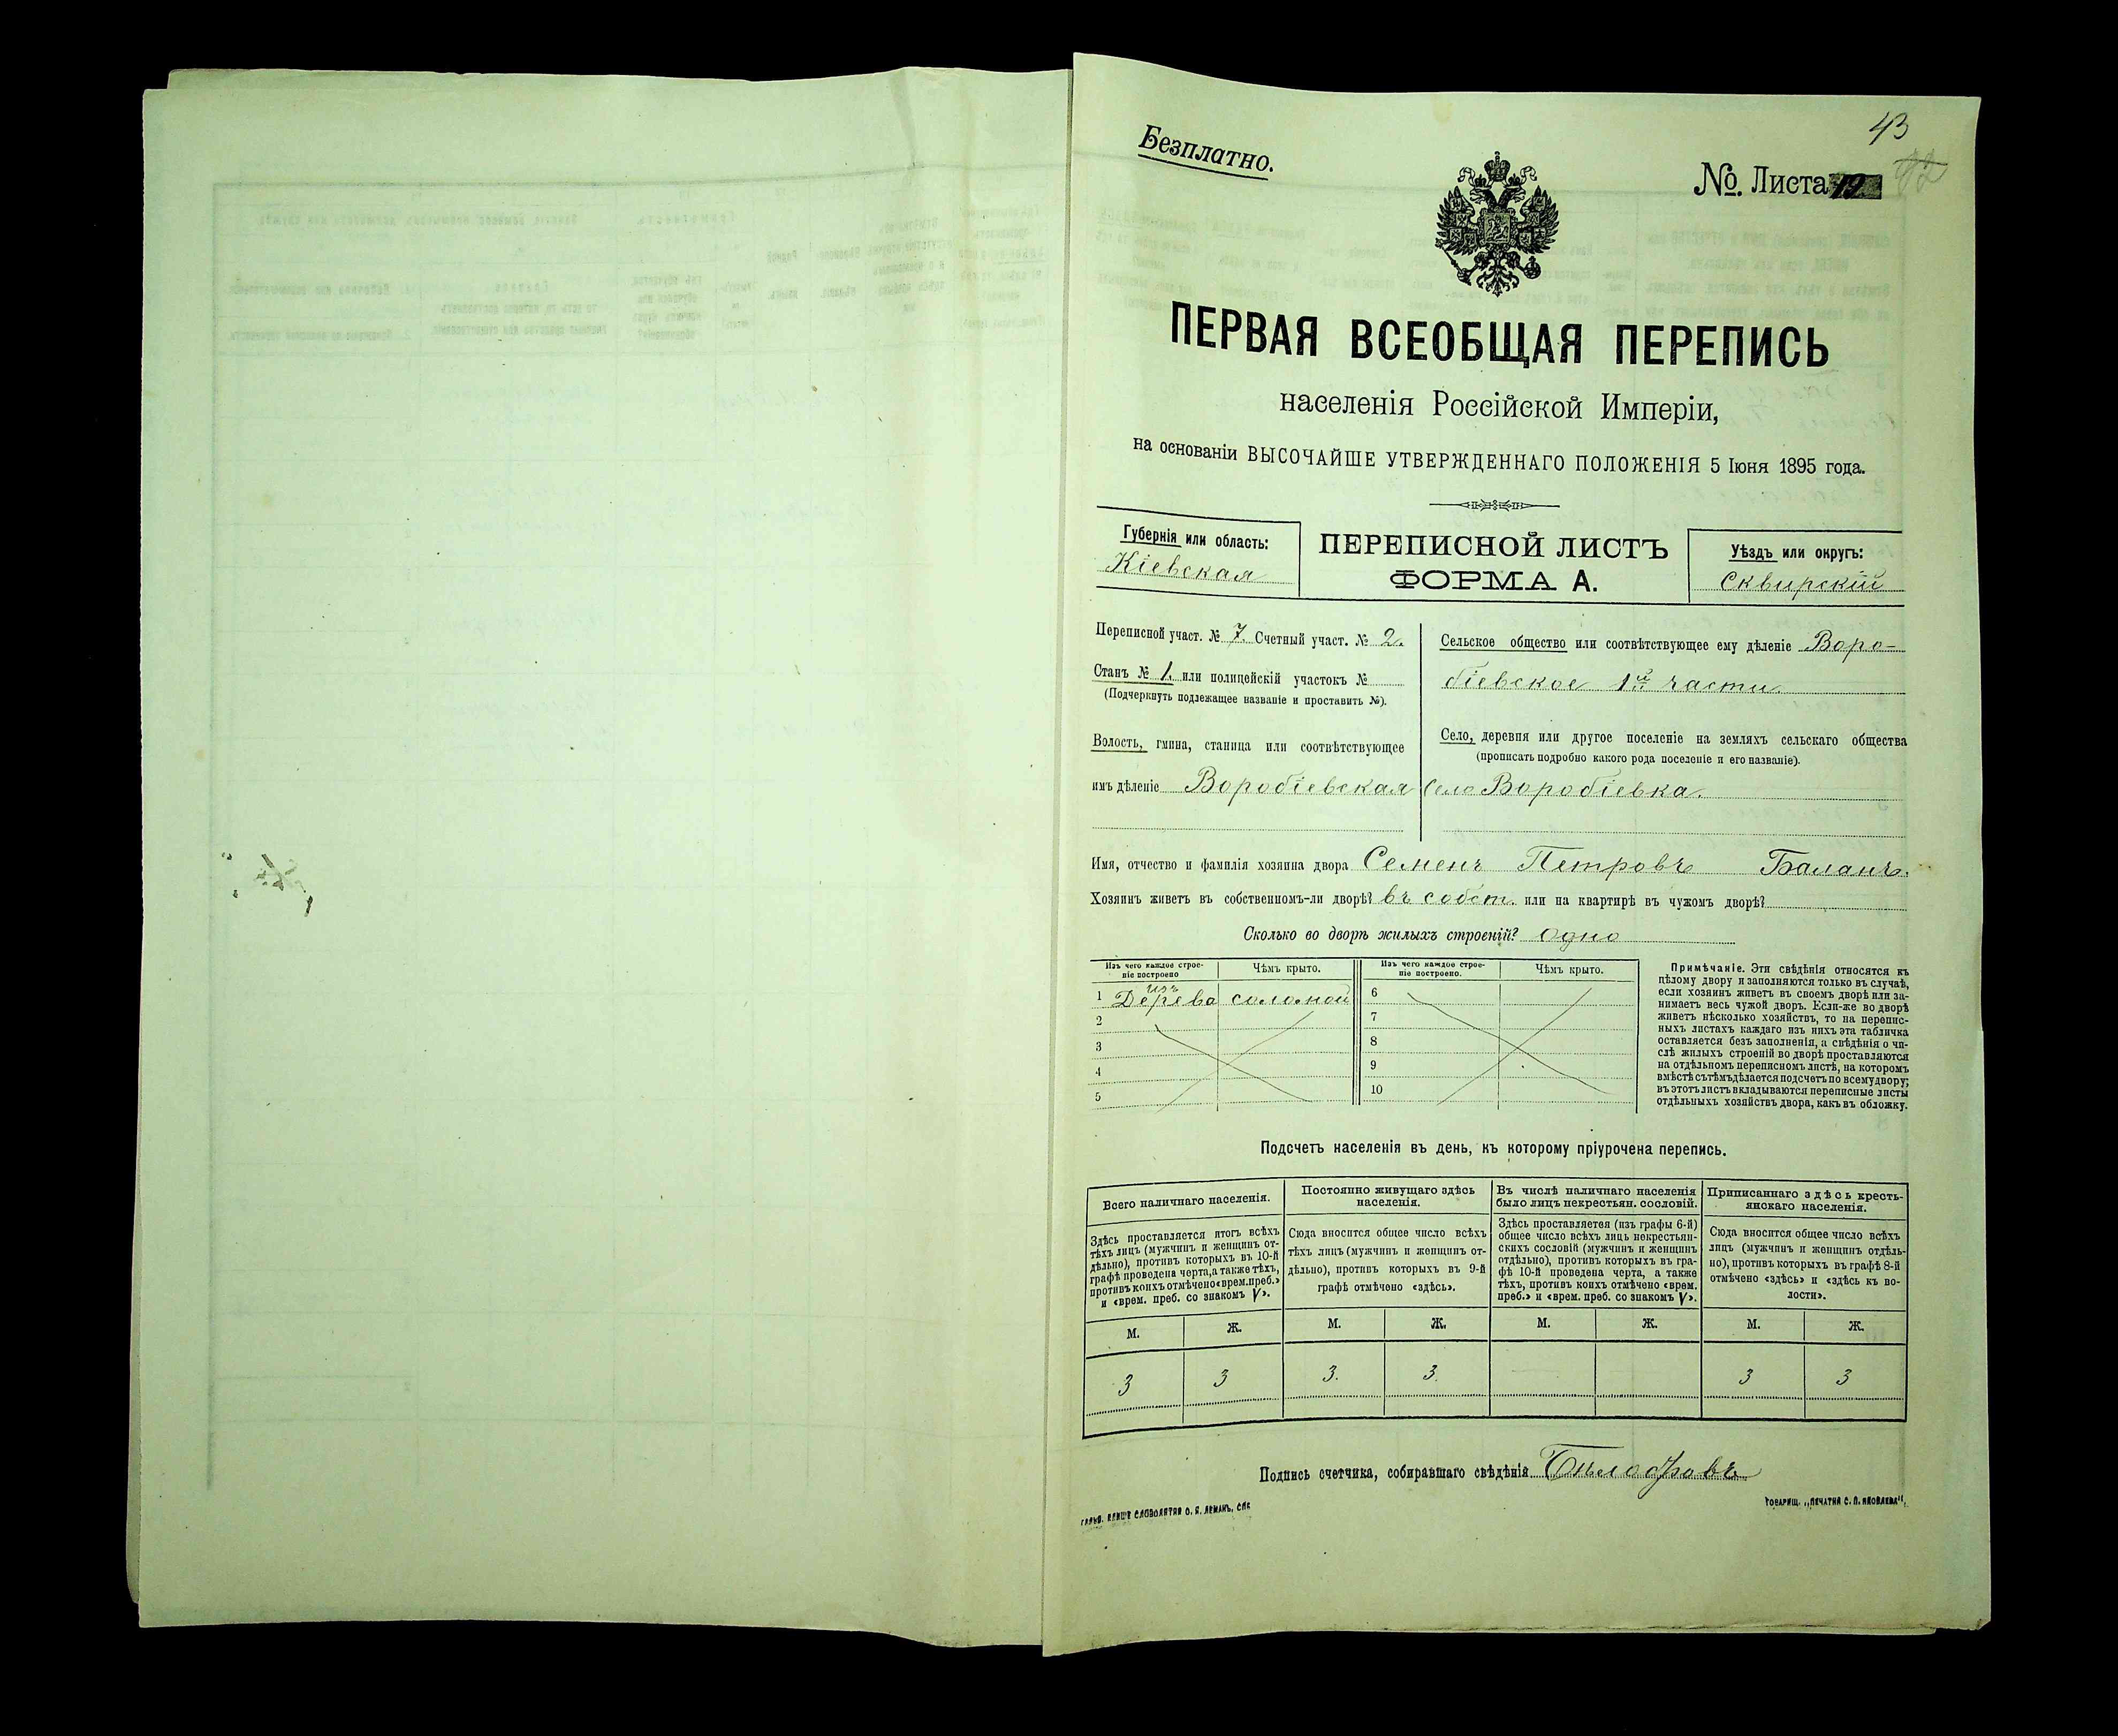 43
Безплатно.
№. Листа 19
42
ПЕРВАЯ ВСЕОБЩАЯ ПЕРЕПИСЬ
населенія Россійской Имперіи,
на основаніи ВЫСОЧАЙШЕ УТВЕРЖДЕННАГО ПОЛОЖЕНІЯ 5 Іюня 1895 года.
Губернія или область:
Кіевская
ПЕРЕПИСНОЙ ЛИСТЪ
ФОРМА А.
Уѣздъ или округъ:
Сквирскій
Переписной участ. № 7. Счетный участ. № 2.
Станъ № 1. или полицейскій участокъ №
(Подчеркнуть подлежащее названіе и проставить №).
Волость, гмина, станица или соотвѣтствующее
имъ дѣленіе Воробіевская
Сельское общество или соотвѣтствующее ему дѣленіе Воро-
біевское 1й части.
Село, деревня или другое поселеніе на земляхъ сельскаго общества
(прописать подробно какого рода поселеніе и его названіе).
Село Воробіевка.
Имя, отчество и фамилія хозяина двора Семенъ Петровъ Баланъ.
Хозяинъ живетъ въ собственномъ-ли дворѣ? въ собст. или на квартирѣ въ чужомъ дворѣ?
Сколько во дворѣ жилыхъ строеній? Одно
Изъ чего каждое строе-
ніе построено
Чѣмъ крыто.
Изъ чего каждое строе-
ніе построено.
Чѣмъ крыто.
1 изъ Дерева соломой
2
3
4
5
6
7
8
9
10
Примѣчаніе. Эти свѣдѣнія относятся къ
цѣлому двору и заполняются только въ случаѣ,
если хозяинъ живетъ въ своемъ дворѣ или за-
нимаетъ весь чужой дворъ. Если-же во дворѣ
живетъ нѣсколько хозяйствъ, то на перепис-
ныхъ листахъ каждаго изъ нихъ эта табличка
оставляется безъ заполненія, а свѣдѣнія о чи-
слѣ жилыхъ строеній во дворѣ проставляются
на отдѣльномъ переписномъ листѣ, на которомъ
вмѣстѣ съ тѣмъ дѣлается подсчетъ по всему двору;
въ этотъ листъ вкладываются переписные листы
отдѣльныхъ хозяйствъ двора, какъ въ обложку.
Подсчетъ населенія въ день, къ которому пріурочена перепись.
Всего наличнаго населенія.
Здѣсь проставляется итогъ всѣхъ
тѣхъ лицъ (мужчинъ и женщинъ от-
дѣльно), противъ которыхъ въ 10-й
графѣ проведена черта, а также тѣхъ,
противъ коихъ отмѣчено «врем. преб.»
и «врем. преб. со знакомъ V».
Постоянно живущаго здѣсь
населенія.
Сюда вносится общее число всѣхъ
тѣхъ лицъ (мужчинъ и женщинъ от-
дѣльно), противъ которыхъ въ 9-й
графѣ отмѣчено «здѣсь».
Въ числѣ наличнаго населенія
было лицъ некрестьян. сословій.
Здѣсь проставляется (изъ графы 6-й)
общее число всѣхъ лицъ некрестьян-
скихъ сословій (мужчинъ и женщинъ
отдѣльно), противъ которыхъ въ гра-
фѣ 10-й проведена черта, а также
тѣхъ, противъ коихъ отмѣчено «врем.
преб.» и «врем. преб. со знакомъ V».
Приписаннаго здѣсь кресть-
янскаго населенія.
Сюда вносится общее число всѣхъ
лицъ (мужчинъ и женщинъ отдѣль-
но), противъ которыхъ въ графѣ 8-й
отмѣчено «здѣсь» и «здѣсь къ во-
лости».
М. Ж. М. Ж. М. Ж. М. Ж.
3 3 3. 3. 3 3
Подпись счетчика, собиравшаго свѣдѣнія
ГАЛЬВ. КЛИШЕ СЛОВОЛИТНИ О. И. ЛЕМАНЪ, СПБ
ТОВАРИЩ. „ПЕЧАТНЯ С. П. ЯКОВЛЕВА".